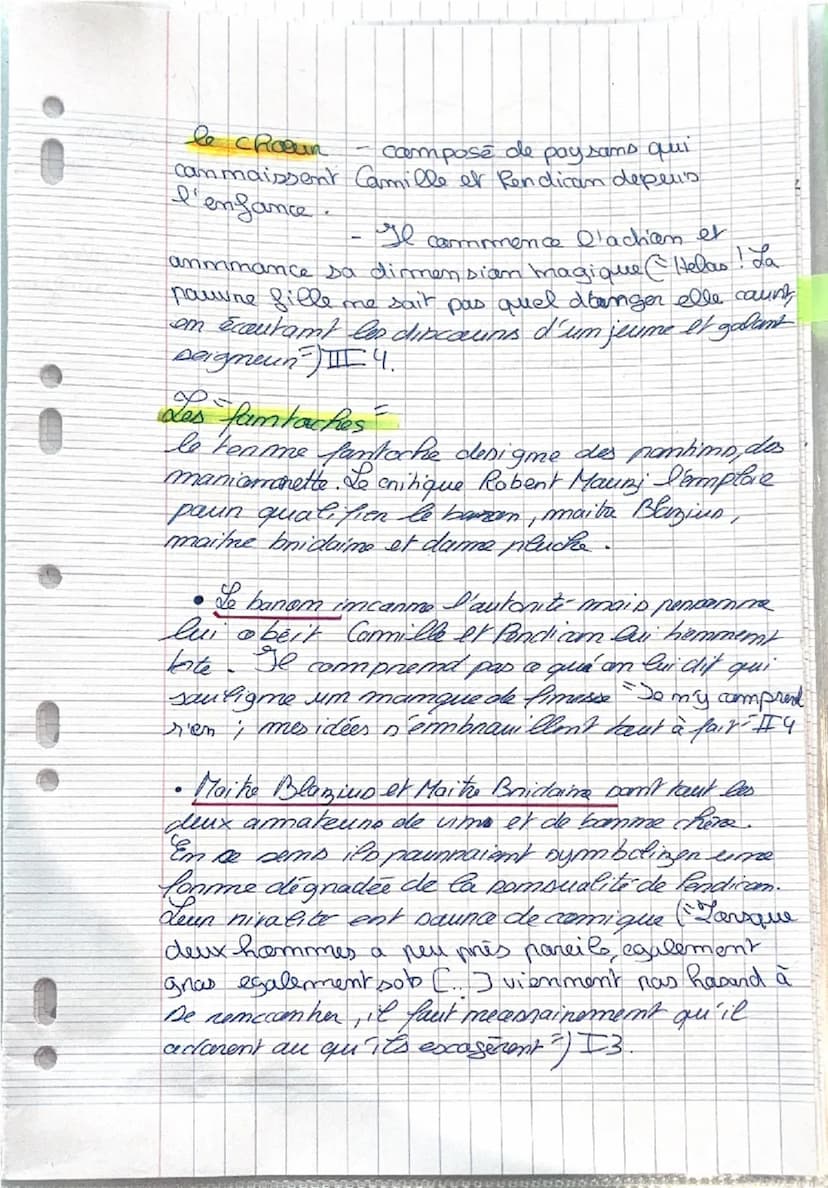 le chœur - composé de paysans qui
connaissent Camille et Perdican depuis
l'enfance.
- Il commence l'action et
annonance sa dimension tragique ("Helas ! La
pauvre fille ne sait pas quel danger elle court,
en écoutant les discours d'un jeune et galant
seigneur") III 4.
Les "fantoches"
le terme fantoche designe des pantins, des
marionnette. Le critique Robert Mauzi l'emploie
pour qualifier le baron, maitre Blazius,
maitre bridaine et dame pluche.
• Le baron incarne l'autorité mais personne
lui obéit Camille et Perdican lui tiennent
tete. Il comprend pas ce qu'on lui dit qui
souligne un manque de finesse "Je n'y comprend
rien ; mes idées s'embrouillent tout à fait" II 4
• Maitre Blazius et Maitre Bridaine sont tout les
deux amateurs de vins et de bonne chère.
En ce sens ils pourraient symboliser une
forme dégradée de la sensualité de Perdican.
Leur rivalité est source de comique ("Lorsque
deux hommes a peu près pareils, egalement
gros egalement sots [...] viennent pas hasard à
se rencontrer, il faut necessairement qu'il
adorent ou qu'ils escagèrent") I 3.